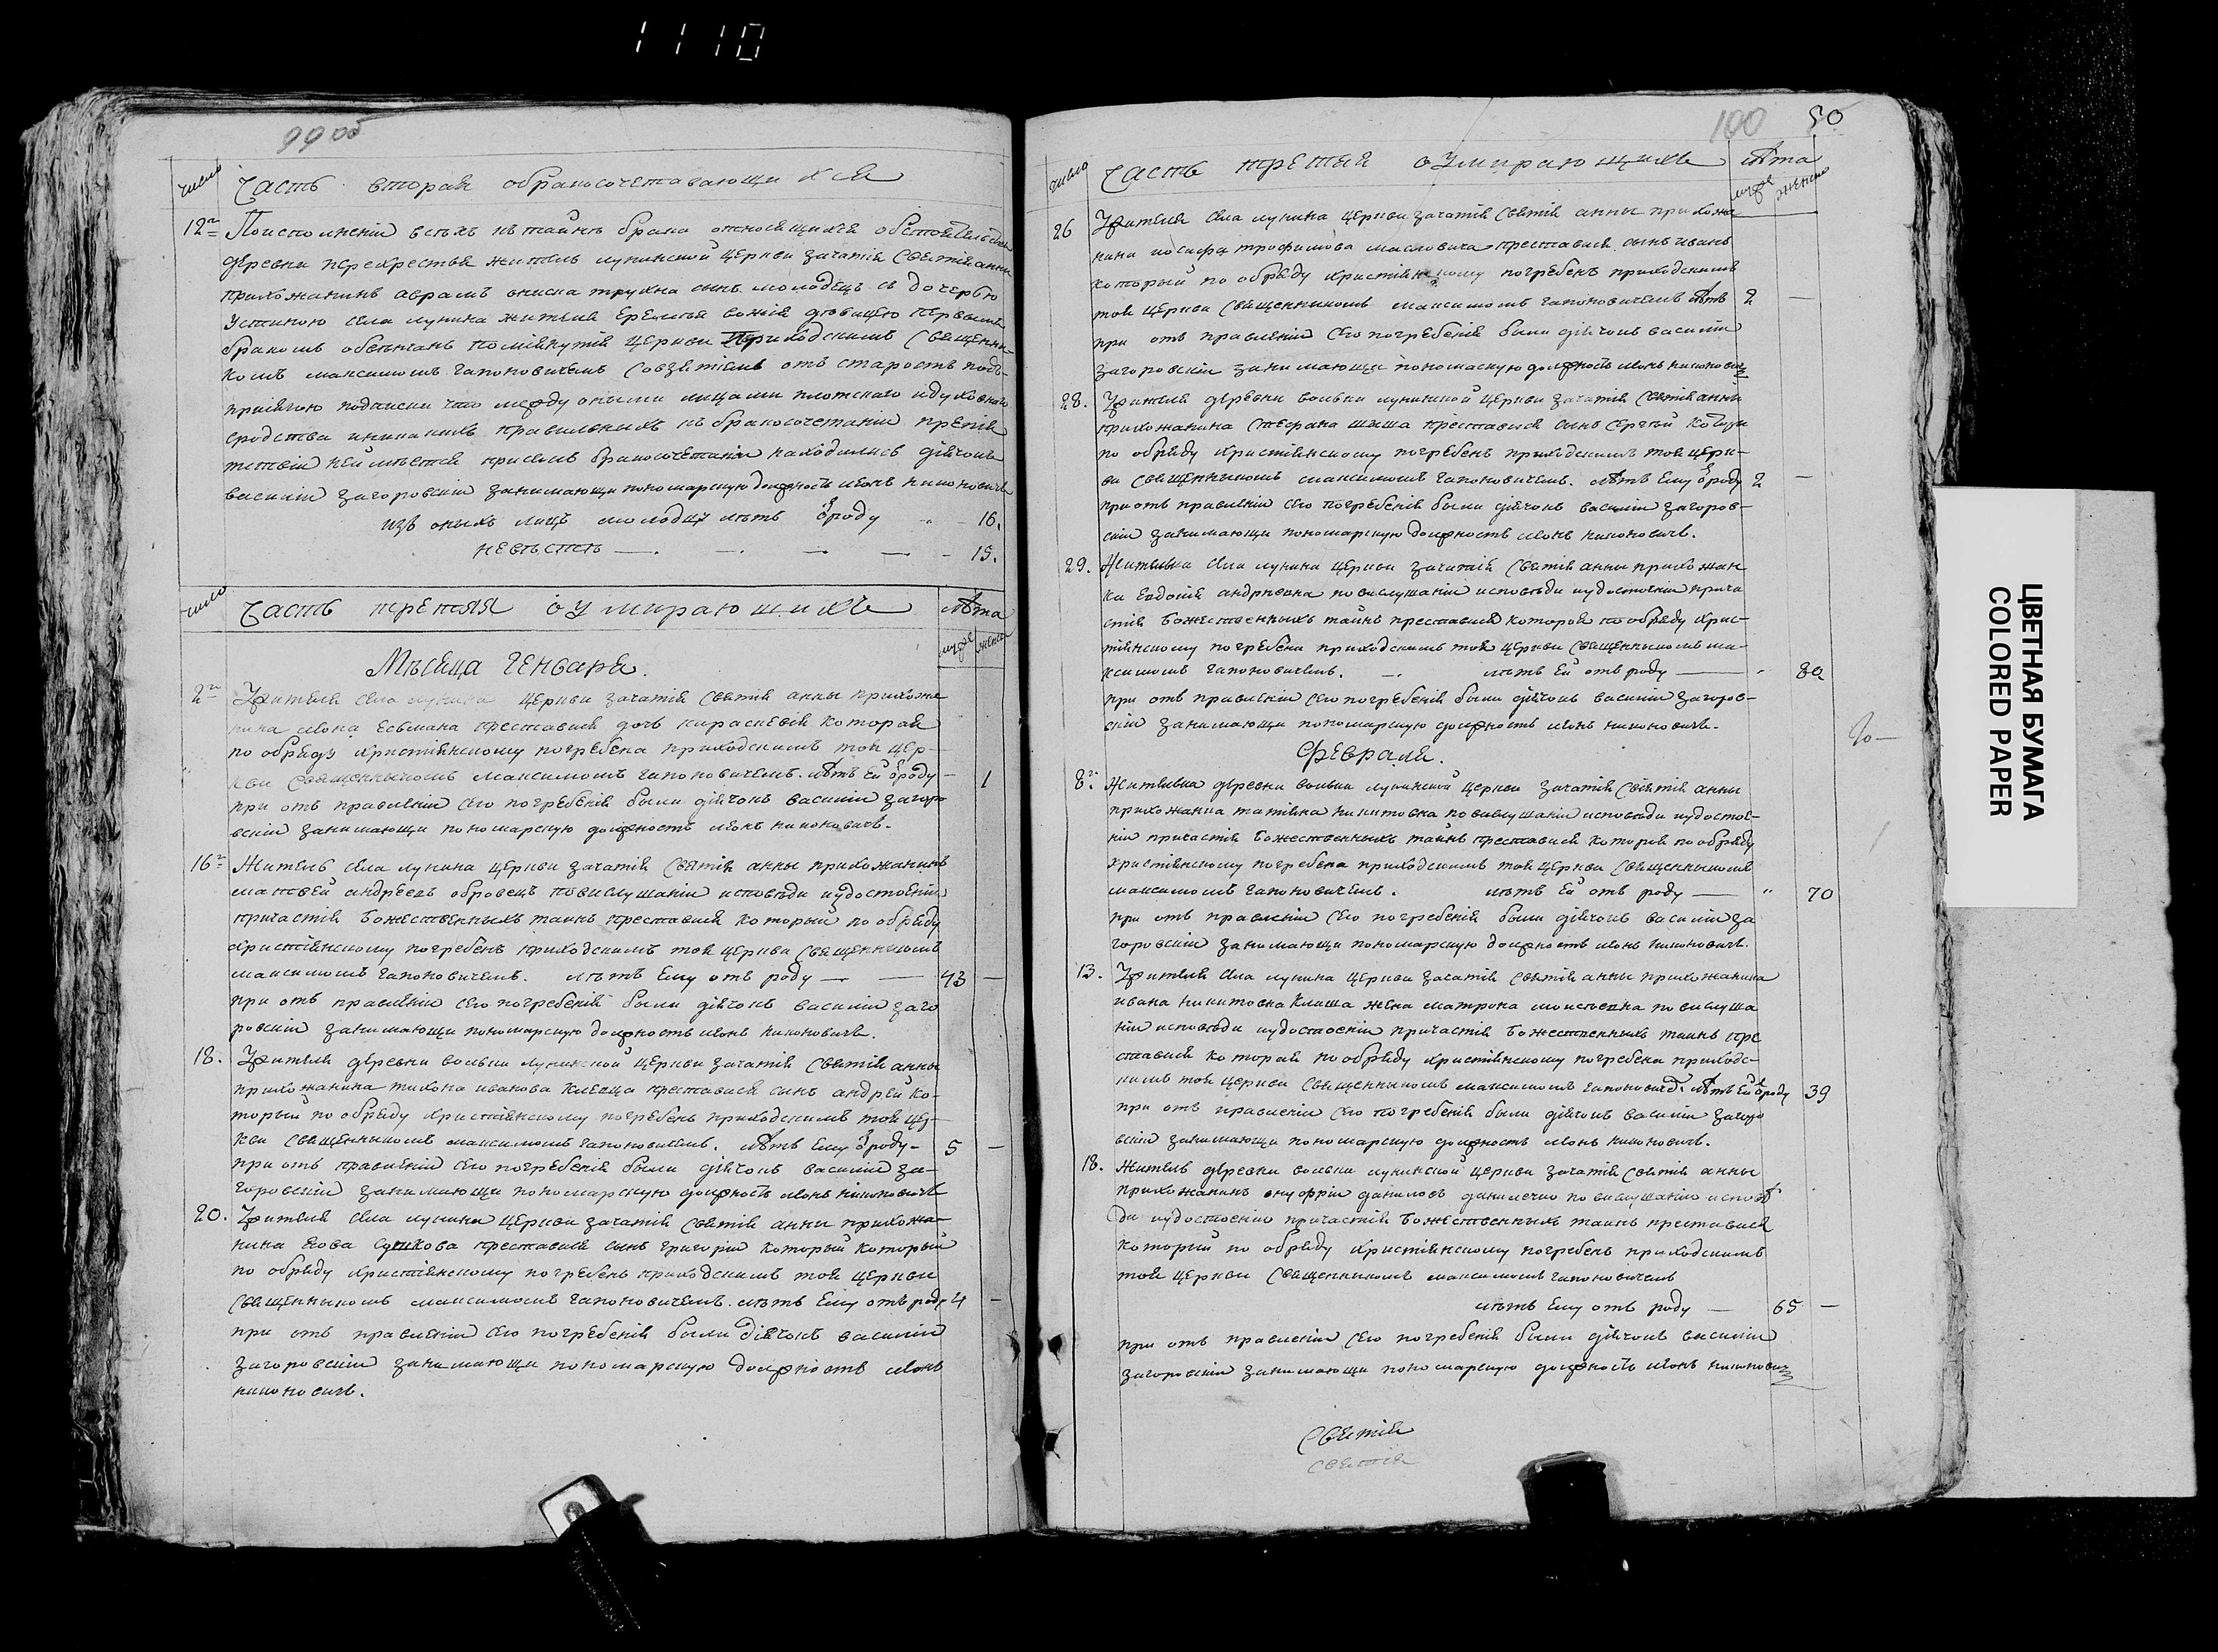 1110
99 об
число Часть вторая обракосочетавающихся
12 Поисполненіи всѣхъ къ тайнѣ брака относящихся обстоятельствъ
деревни перекрестья житель лунинской церкви зачатія святія анны
прихожанинъ аврамъ сынъ молодецъ съ дочерью
Устиною села лунина жителя Еремѣя дѣвицею первымъ
бракомъ обвѣнчанъ помянутія церкви приходскимъ священни-
комъ максимомъ гапоновичемъ совзятіемъ отъ старостъ подъ-
присягою подписки что между оными лицами плотскаго идуховнаго
сродства иникакихъ правильныхъ къ бракосочетанію препят
тствіи неимѣется присемъ бракосочетаніи находились дячокъ
василіи загоровскіи занимающи пономарскую должность леонъ никоновичъ
изъ оныхъ лицъ молодцу лѣтъ ѿроду 16.
невѣстѣ — — — — 15.
число Часть третяя о умирающихъ лѣта
муже женск
Мѣсяца Генваря.
2 Жителя села лунина церкви зачатія святія анны прихожа
нина леона преставися дочь параскевія которая
по обряду христіянскому погребена приходскимъ тоя цер-
кви священникомъ максимомъ гапоновичемъ. лѣтъ Ей ѿроду — 1
при отъ правленіи сего погребенія были дячокъ василіи загоро
вскіи занимающи пономарскую должность леонъ никоновичъ.
16 Житель села лунина церкви зачатія святія анны прихожанинъ
матвей андреевъ обровецъ повислушаніи исповѣди иудостоеніи
причастія Божественныхъ таинъ преставися который по обряду
христіянскому погребенъ приходскимъ тоя церкви священникомъ
максимомъ гапоновичемъ. лѣтъ Ему отъ роду — — 43 —
при отъ правленіи сего погребенія были дячокъ василіи заго
ровскіи занимающи пономарскую должность леонъ никоновичъ.
18. Жителя деревни вольки лунинской церкви зачатія святія анны
прихожанина тихона иванова клевца преставися синъ андрей ко-
торый по обряду христіянскому погребенъ приходскимъ тоя цер-
кви священникомъ максимомъ гапоновичемъ. лѣтъ Ему ѿроду - 5 —
при отъ правленіи сего погребенія были дячокъ василіи за-
горовскіи занимающи пономарскую должность леонъ никоновичъ
20. Жителя села лунина церкви зачатія святія анни прихожа-
нина преставися сынъ григоріи который который
по обряду христіянскому погребенъ приходскимъ тоя церкви
священникомъ максимомъ гапоновичемъ. лѣтъ Ему отъ роду 4 —
при отъ правленіи сего погребенія были дячокъ василіи
загоровскіи занимающи пономарскую должность леонъ
никоновичъ.
100 50
число Часть третяя о умирающихъ лѣта
муже женско
26 Жителя села лунина церкви зачатія святія анны прихожа
нина иосифа трофимова масловича преставися сынъ иванъ
который по обряду христіянскому погребенъ приходскимъ
тоя церкви священникомъ максимомъ гапоновичемъ лѣтъ 2 —
при отъ правленіи сего погребенія были дячокъ василіи
загоровскіи занимающи пономаскую должность леонъ никоновичъ
28. Жителя деревни вольки лунинской церкви зачатія святія анны
прихожанина стефана шиша преставися сынъ сергѣй которы
по обряду христіянскому погребенъ приходскимъ тоя церк-
ви священникомъ максимомъ гапоновичемъ. лѣтъ Ему ѿроду 2 —
приотъ правленіи сего погребенія были дячокъ василіи загоров-
скіи занимающи пономарскую должность леонъ никоновичъ.
29. Жителька села лунина церкви зачатія святія анны прихожан
ка Евдокія андреевна повислушаніи исповѣди иудостоеніи прича
стія Божественныхъ таинъ преставися которая по обряду хрис-
тіянскому погребена приходскимъ тоя церкви священникомъ ма-
ксимомъ гапоновичемъ. — лѣтъ Ей отъ роду — 80
при отъ правленіи сего погребенія были дячокъ василіи загоров-
скіи занимающи пономарскую должность леонъ никоновичъ.
Февраля.
8 Жителька деревни вольки лунинской церкви зачатія святія анны
прихожанка татіяна никитовна повислушаніи исповѣди иудостое-
ніи причастія Божественныхъ таинъ преставися которая по обряду
христіянскому погребена приходскимъ тоя церкви священникомъ
максимомъ гапоновичемъ. лѣтъ Ей отъ роду — " 70
при отъ правленіи сего погребенія были дячокъ василіи за
горовскіи занимающи пономарскую должность леонъ никоновичъ.
13. Жителя села лунина церкви зачатія святія анны прихожанина
ивана никитовна клиша жена матрона моисеевна по вислуша
ніи исповѣди иудостоеніи причастія Божественныхъ таинъ пре
ставися которая по обряду христіянскому погребена приходс-
кимъ тоя церкви священникомъ максимомъ гапоновичемъ. лѣтъ Ей ѿроду 39
при отъ правленіи сего погребенія были дячокъ василіи загоро
вскіи занимающи пономарскую должность леонъ никоновичъ.
18. Житель деревни вольки лунинской церкви зачатія святія анны
прихожанинъ онуфріи даниловъ по вислушаніи исповѣ
ди иудостоенію причастія Божественныхъ таинъ преставися
который по обряду христіянскому погребенъ приходскимъ
тоя церкви священникомъ максимомъ гапоновичемъ
лѣтъ Ему отъ роду — 65 —
при отъ правленіи сего погребенія были дячокъ василіи
загоровскіи занимающи пономарскую должность леонъ никоновичъ
святія
святія
ЦВЕТНАЯ БУМАГА
COLORED PAPER